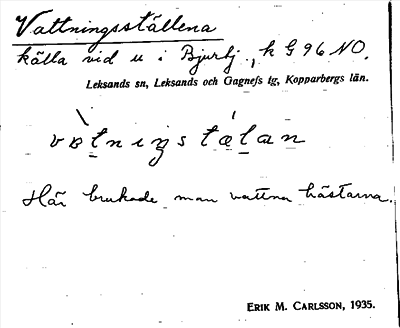 Vattningsställena
källa vid u i Bjurbj., k G 96 NO.
Leksands sn, Leksands och Gagnefs tg, Kopparbergs län.
vatnıŋstælan
Här brukade man vattna hästarna.
ERIK M. CARLSSON, 1935.